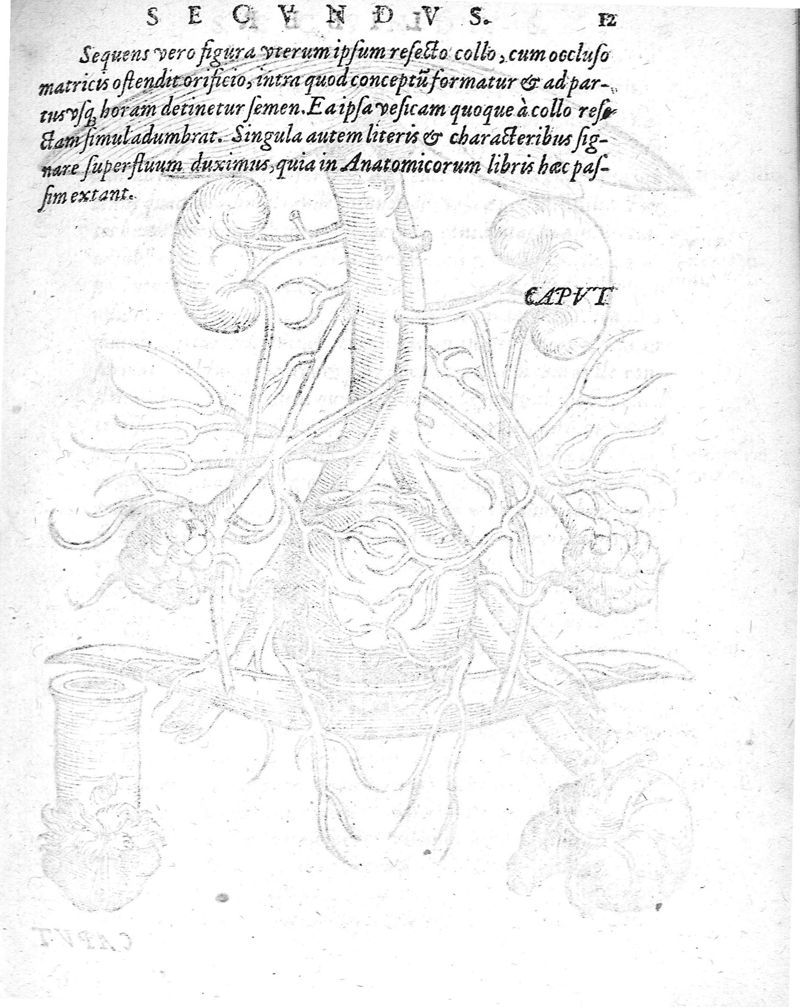 SECVNDVS. 12
Sequens vero figura vterum ipsum resecto collo, cum occluso
matricis ostendit orificio, intra quod conceptũ formatur & ad par-
tus vsq; horam detinetur semen. Ea ipsa vesicam quoque à collo rese-
ctam simul adumbrat. Singula autem literis & characteribus sig-
nare superfluum duximus, quia in Anatomicorum libris hæc pas-
sim extant.
CAPVT
CAPVT